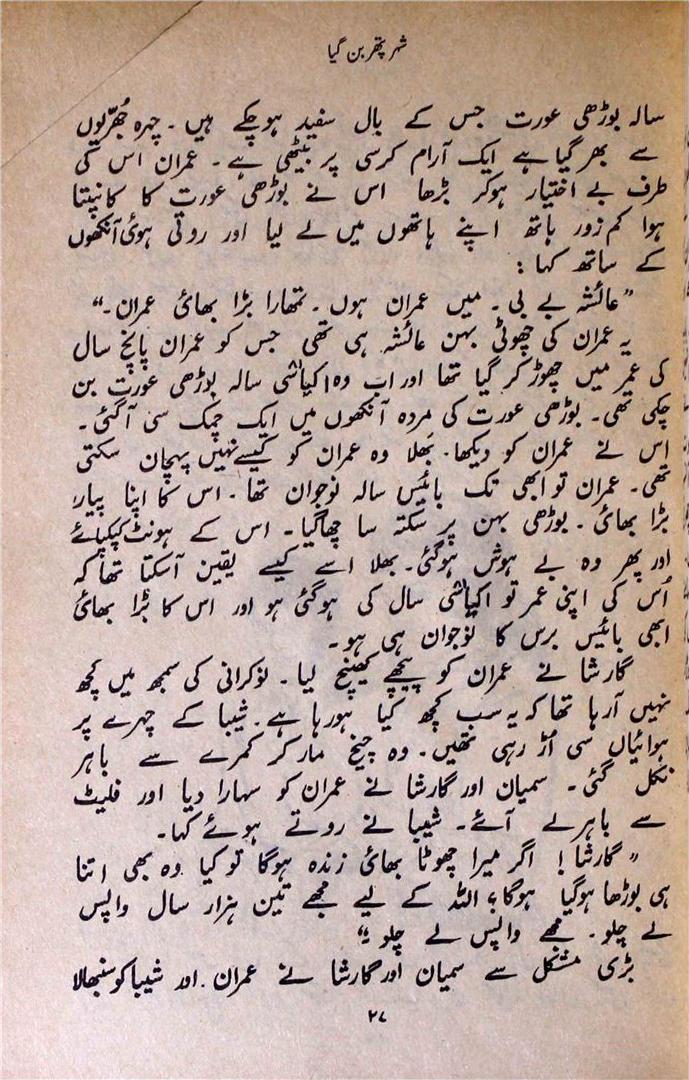 شہر پتھر بن گیا
سالہ بوڑھی عورت جس کے بال سفید ہوچکے ہیں۔ چہرہ جھریوں
سے بھر گیا ہے ایک آرام کرسی پر بیٹھی ہے۔ عمران اس کی
طرف بے اختیار ہوکر بڑھا اس نے بوڑھی عورت کا کانپتا
ہوا کم زور ہاتھ اپنے ہاتھوں میں لے لیا اور روتی ہوئی آنکھوں
کے ساتھ کہا :
”عائشہ بے بی۔ میں عمران ہوں۔ تمھارا بڑا بھائی عمران۔“
یہ عمران کی چھوٹی بہن عائشہ ہی تھی جس کو عمران پانچ سال
کی عمر میں چھوڑ کر گیا تھا اور اب وہ اکیاشی سالہ بوڑھی عورت بن
چکی تھی۔ بوڑھی عورت کی مردہ آنکھوں میں ایک چمک سی آگئی۔
اس نے عمران کو دیکھا۔ بھلا وہ عمران کو کیسے نہیں پہچان سکتی
تھی۔ عمران تو ابھی تک بائیس سالہ نوجوان تھا۔ اس کا اپنا پیارا
بڑا بھائی۔ بوڑھی بہن پر سکتہ سا چھاگیا۔ اس کے ہونٹ کپکپائے
اور پھر وہ بے ہوش ہوگئی۔ بھلا اسے کیسے یقین آسکتا تھا کہ
اُس کی اپنی عمر تو اکیاشی سال کی ہوگئی ہو اور اس کا بڑا بھائی
ابھی بائیس برس کا نوجوان ہی ہو۔
گارشا نے عمران کو پیچھے کھینچ لیا۔ نوکرانی کی سمجھ میں کچھ
نہیں آرہا تھا کہ یہ سب کچھ کیا ہورہا ہے۔ شیبا کے چہرے پر
ہوائیاں سی اڑ رہی تھیں۔ وہ چیخ مار کر کمرے سے باہر
نکل گئی۔ سمیان اور گارشا نے عمران کو سہارا دیا اور فلیٹ
سے باہر لے آئے۔ شیبا نے روتے ہوئے کہا۔
”گارشا! اگر میرا چھوٹا بھائی زندہ ہوگا تو کیا وہ بھی اتنا
ہی بوڑھا ہوگیا ہوگا؟ اللہ کے لیے مجھے تین ہزار سال واپس
لے چلو۔ مجھے واپس لے چلو۔“
بڑی مشکل سے سمیان اور گارشا نے عمران اور شیبا کو سنبھالا
۲۷